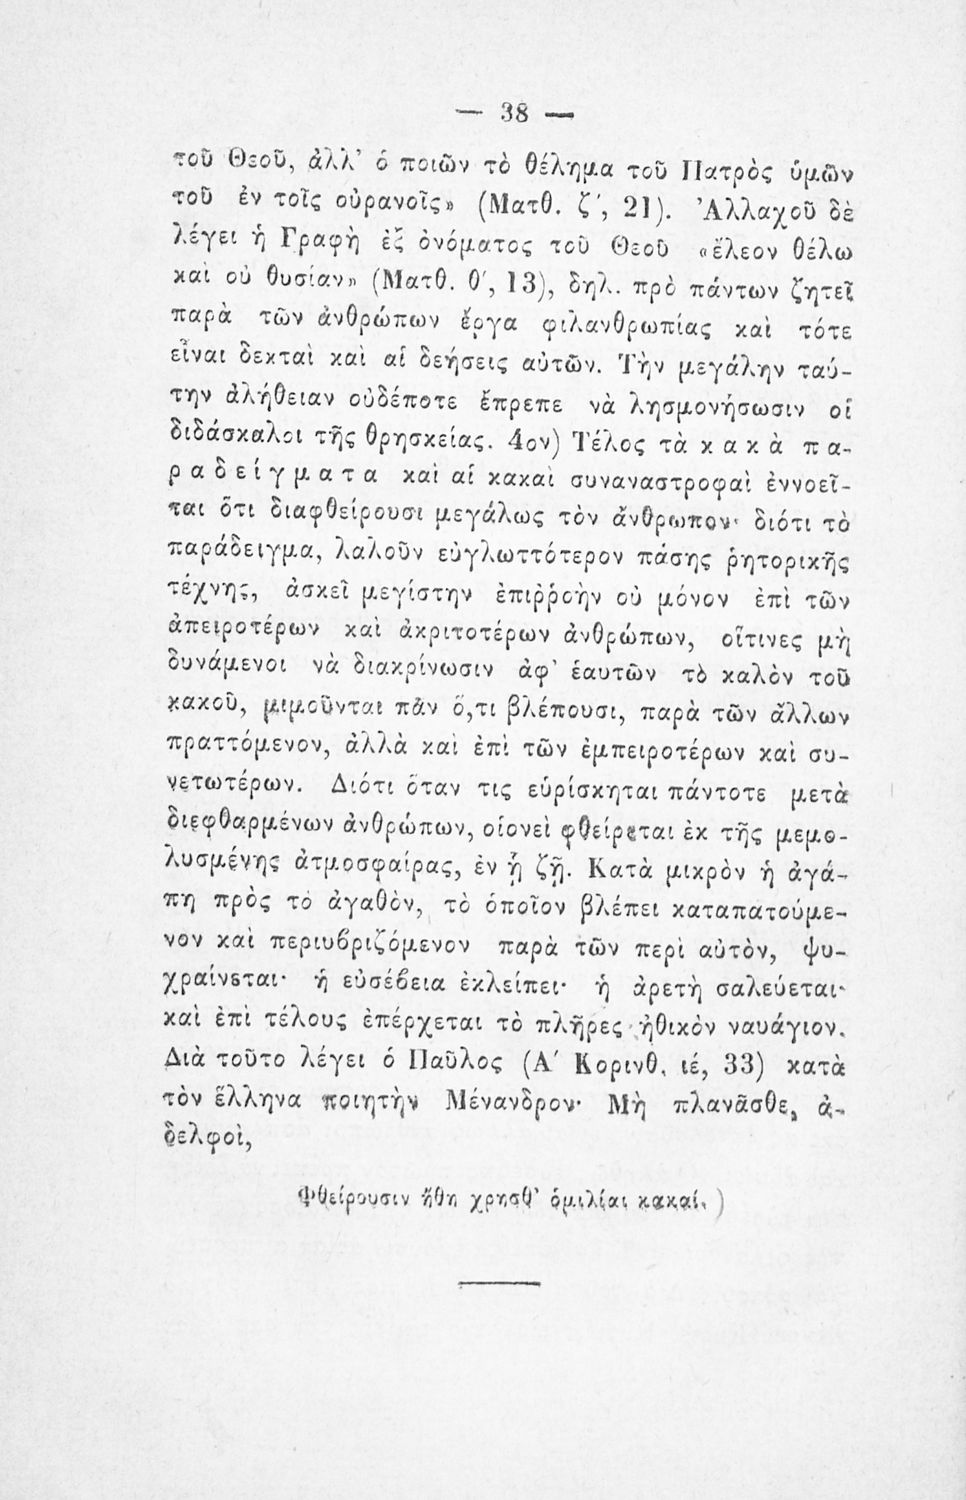 — 38 —
τοῦ Θεοῦ, ἀλλ' ὁ ποιῶν τὸ θέλημα τοῦ Πατρὸς ὑμῶν
τοῦ ἐν τοῖς οὐρανοῖς» (Ματθ. ζ', 21). Ἀλλαχοῦ δὲ
λέγει ἡ Γραφὴ ἐξ ὀνόματος τοῦ Θεοῦ «ἔλεον θέλω
καὶ οὐ θυσίαν» (Ματθ. θ', 13), δηλ. πρὸ πάντων ζητεῖ
παρὰ τῶν ἀνθρώπων ἔργα φιλανθρωπίας καὶ τότε
εἶναι δεκταὶ καὶ αἱ δεήσεις αὐτῶν. Τὴν μεγάλην ταύ-
την ἀλήθειαν οὐδέποτε ἔπρεπε νὰ λησμονήσωσιν οἱ
διδάσκαλοι τῆς θρησκείας. 4ον) Τέλος τὰ κ α κ ὰ π α-
ρ α δ ε ί γ μ α τ α καὶ αἱ κακαὶ συναναστροφαὶ ἐννοεῖ-
ται ὅτι διαφθείρουσι μεγάλως τὸν ἄνθρωπον· διότι τὸ
παράδειγμα, λαλοῦν εὐγλωττότερον πάσης ῥητορικῆς
τέχνης, ἀσκεῖ μεγίστην ἐπιῤῥοὴν οὐ μόνον ἐπὶ τῶν
ἀπειροτέρων καὶ ἀκριτοτέρων ἀνθρώπων, οἵτινες μὴ
δυνάμενοι νὰ διακρίνωσιν ἀφ' ἑαυτῶν τὸ καλὸν τοῦ
κακοῦ, μιμοῦνται πᾶν ὅ,τι βλέπουσι, παρὰ τῶν ἄλλων
πραττόμενον, ἀλλὰ καὶ ἐπὶ τῶν ἐμπειροτέρων καὶ συ-
νετωτέρων. Διότι ὅταν τις εὑρίσκηται πάντοτε μετὰ
διεφθαρμένων ἀνθρώπων, οἱονεὶ φθείρεται ἐκ τῆς μεμο-
λυσμένης ἀτμοσφαίρας, ἐν ᾗ ζῇ. Κατὰ μικρὸν ἡ ἀγά-
πη πρὸς τὸ ἀγαθὸν, τὸ ὁποῖον βλέπει καταπατούμε-
νον καὶ περιυβριζόμενον παρὰ τῶν περὶ αὐτὸν, ψυ-
χραίνεται· ἡ εὐσέβεια ἐκλείπει· ἡ ἀρετὴ σαλεύεται·
καὶ ἐπὶ τέλους ἐπέρχεται τὸ πλῆρες ἠθικὸν ναυάγιον.
Διὰ τοῦτο λέγει ὁ Παῦλος (Α' Κορινθ. ιέ, 33) κατὰ
τὸν ἕλληνα ποιητὴν Μένανδρον· Μὴ πλανᾶσθε, ἀ-
δελφοὶ,
Φθείρουσιν ἤθη χρησθ' ὁμιλίαι κακαί. )